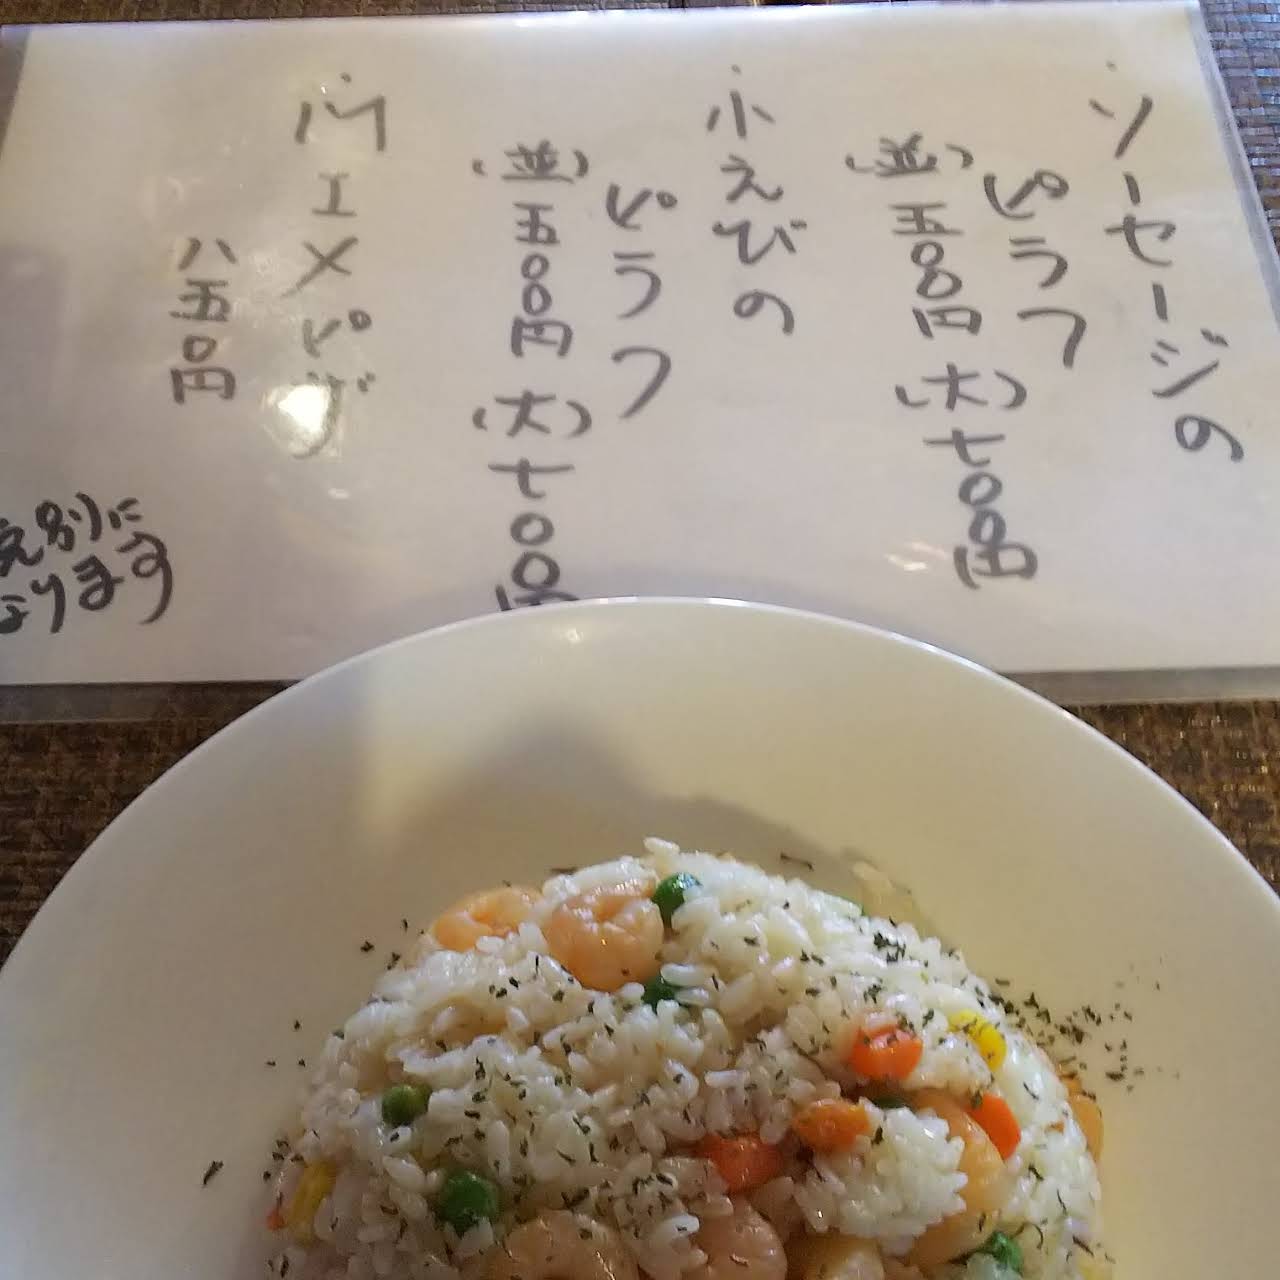 ・ソーセージの
ピラフ
(並)五〇〇円(大)七〇〇円
・小えびの
ピラフ
(並)五〇〇円(大)七〇〇
・小エメピザ
八五〇円
別に
なります